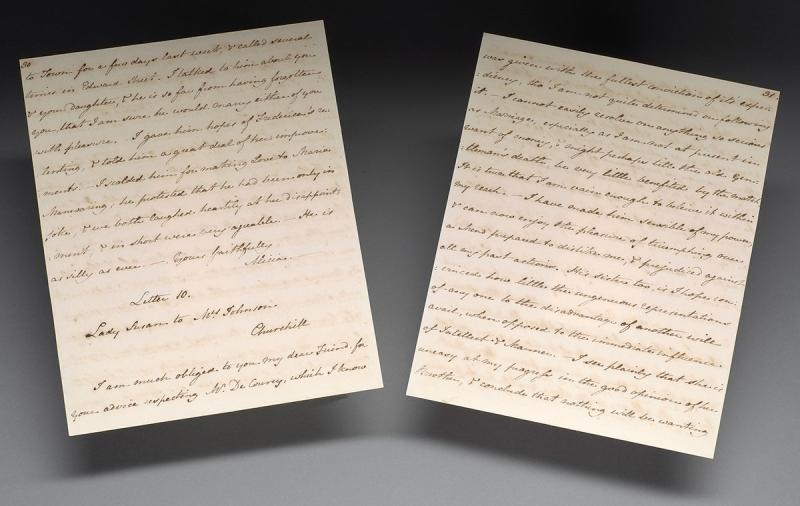 30
to Town for a few days last week, & called several
times in Edward Street. I talked to him about you
& your daughter, & he is so far from having forgotten
you, that I am sure he would marry either of you
with pleasure. I gave him hopes of Frederica's re
lenting, & told him a great deal of her improve:
ments. I scolded him for making Love to Maria
Manwaring; he protested that he had been only in
joke, & we both laughed heartily at her disappoint:
:ment, & in short were very agreable. He is
as silly as ever. Yours faithfully
Alicia.
Letter 10.
Lady Susan to Mrs Johnson
Churchill
I am much obliged to you my dear Friend, for
your advice respecting Mr. De Courcy, which I know
31.
was given with the fullest conviction of its expedi
:diency, tho' I am not quite determined on following
it. I cannot easily resolve on anything so serious
as Marriage, especially as I am not at present in
want of money, & might perhaps till the old Gen:
:tleman's death, be very little benefited by the match.
It is true that I am vain enough to beleive it within
my reach. I have made him sensible of my power,
& can now enjoy the pleasure of triumphing over
a Mind prepared to dislike me, & prejudiced against
all my past actions. His sister too, is I hope con:
:vinced how little the ungenerous representations
of any one to the disadvantage of another will
avail, when opposed to the immediate influence
of Intellect & Manner. I see plainly that she is
uneasy at my progress in the good opinion of her
Brother, & conclude that nothing will be wanting